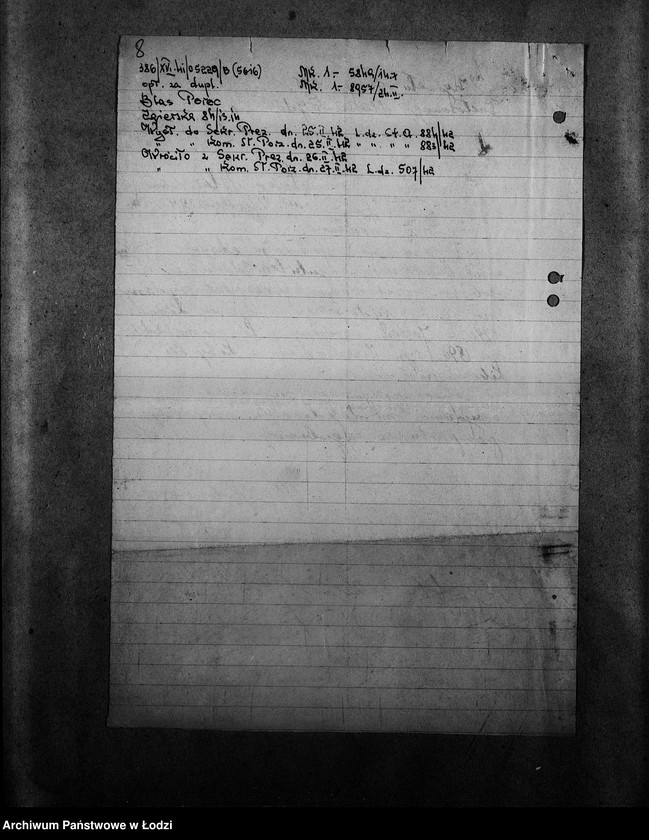 8
386/XVI-41/05229/B (5616) Mk. 1.- 5849/14.I
opł. za dupl. Mk. 1.- 8957/24.II.
Blas
Zgierska 84/15.14
Wysł. do Sekr. Prez. dn. 25.II.42 L.dz. Ct.O. 884/42
" " Kom. St. Porz. dn. 25.II.42 " " " " 883/42
Wróciło z Sekr. Prez. dn. 26.II.42
" " Kom. St. Porz. dn. 27.II.42 L.dz. 507/42
Archiwum Państwowe w Łodzi